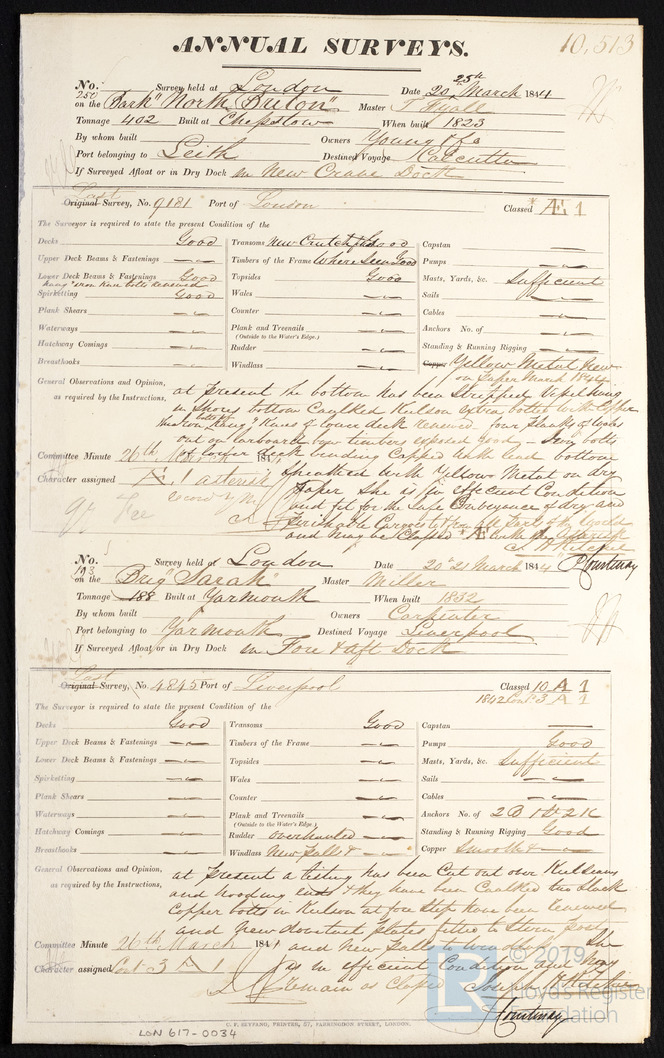 ANNUAL SURVEYS.
10,513
No. 250 Survey held at London Date 20, 25th March 1844
on the Bark "North Briton" Master T. Fyall
Tonnage 402 Built at Chepstow When built 1823
By whom built Owners Young & Co
Port belonging to Leith Destined Voyage Calcutta
If Surveyed Afloat or in Dry Dock in New Crane Dock
Last
Original Survey, No. 9181 Port of London Classed *Æ 1
The Surveyor is required to state the present Condition of the
Decks Good Transoms New Crutch Good Capstan
Upper Deck Beams & Fastenings Timbers of the Frame Where Seen Good Pumps
Lower Deck Beams & Fastenings Good Topsides Good Masts, Yards, &c. Sufficient
Hang'g Iron Knee bolts renewed
Spirketting Good Wales Sails
Plank Shears Counter Cables
Waterways Plank and Treenails Anchors No. of
(Outside to the Water's Edge.)
Hatchway Comings Rudder Standing & Running Rigging
Breasthooks Windlass Copper Yellow Metal New
on Paper March 1844
General Observations and Opinion, at Present the bottom has been Stripped
as required by the Instructions, in Shores bottom Caulked Keelson extra bolted with Copper
Knees of lower deck renewed. four planks of
out on larboard bow timbers exposed good
Committee Minute 26th March 1844 of lower deck lead bottom
Character assigned Æ 1 asterisk Sheathed with Yellow Metal on dry
Paper She is in efficient Condition
and fit for the Safe Conveyance of dry and
Perishable Cargoes to & from all parts of the World
and may be Classed *Æ 1 with the asterisk
Courtenay
No. 193 Survey held at London Date 20th 21 March 1844
on the Brig "Sarah" Master Miller
Tonnage 188 Built at Yarmouth When built 1832
By whom built Owners Carpenter
Port belonging to Yarmouth Destined Voyage Liverpool
If Surveyed Afloat or in Dry Dock in Fore & aft Dock
Last
Original Survey, No. 4845 Port of Liverpool Classed 10 A 1
1842 Cont. 3 A 1
The Surveyor is required to state the present Condition of the
Decks Good Transoms Good Capstan
Upper Deck Beams & Fastenings Timbers of the Frame Pumps Good
Lower Deck Beams & Fastenings Topsides Masts, Yards, &c. Sufficient
Spirketting Wales Sails
Plank Shears Counter Cables
Waterways Plank and Treenails Anchors No. of 2 B 1 St 2 K
(Outside to the Water's Edge.)
Hatchway Comings Rudder overhauled Standing & Running Rigging Good
Breasthooks Windlass New Falls & Copper Smooth &
General Observations and Opinion, at Present a testing has been Cut out over Keel seams
as required by the Instructions, and hooding ends & they have been Caulked two slack
Copper bolts in Keelson at fore Step have been renewed
and New dovetail plates fitted to Stern post
Committee Minute 26th March 1844 and New Falls to windlass She
Character assigned Cont 3 A 1 is in efficient Condition and May
remain as Classed Joseph
Courtenay
C. F. SEYFANG, PRINTER, 57, FARRINGDON STREET, LONDON.
LON 617-0034
© 2019
LR
Lloyd's Register
Foundation